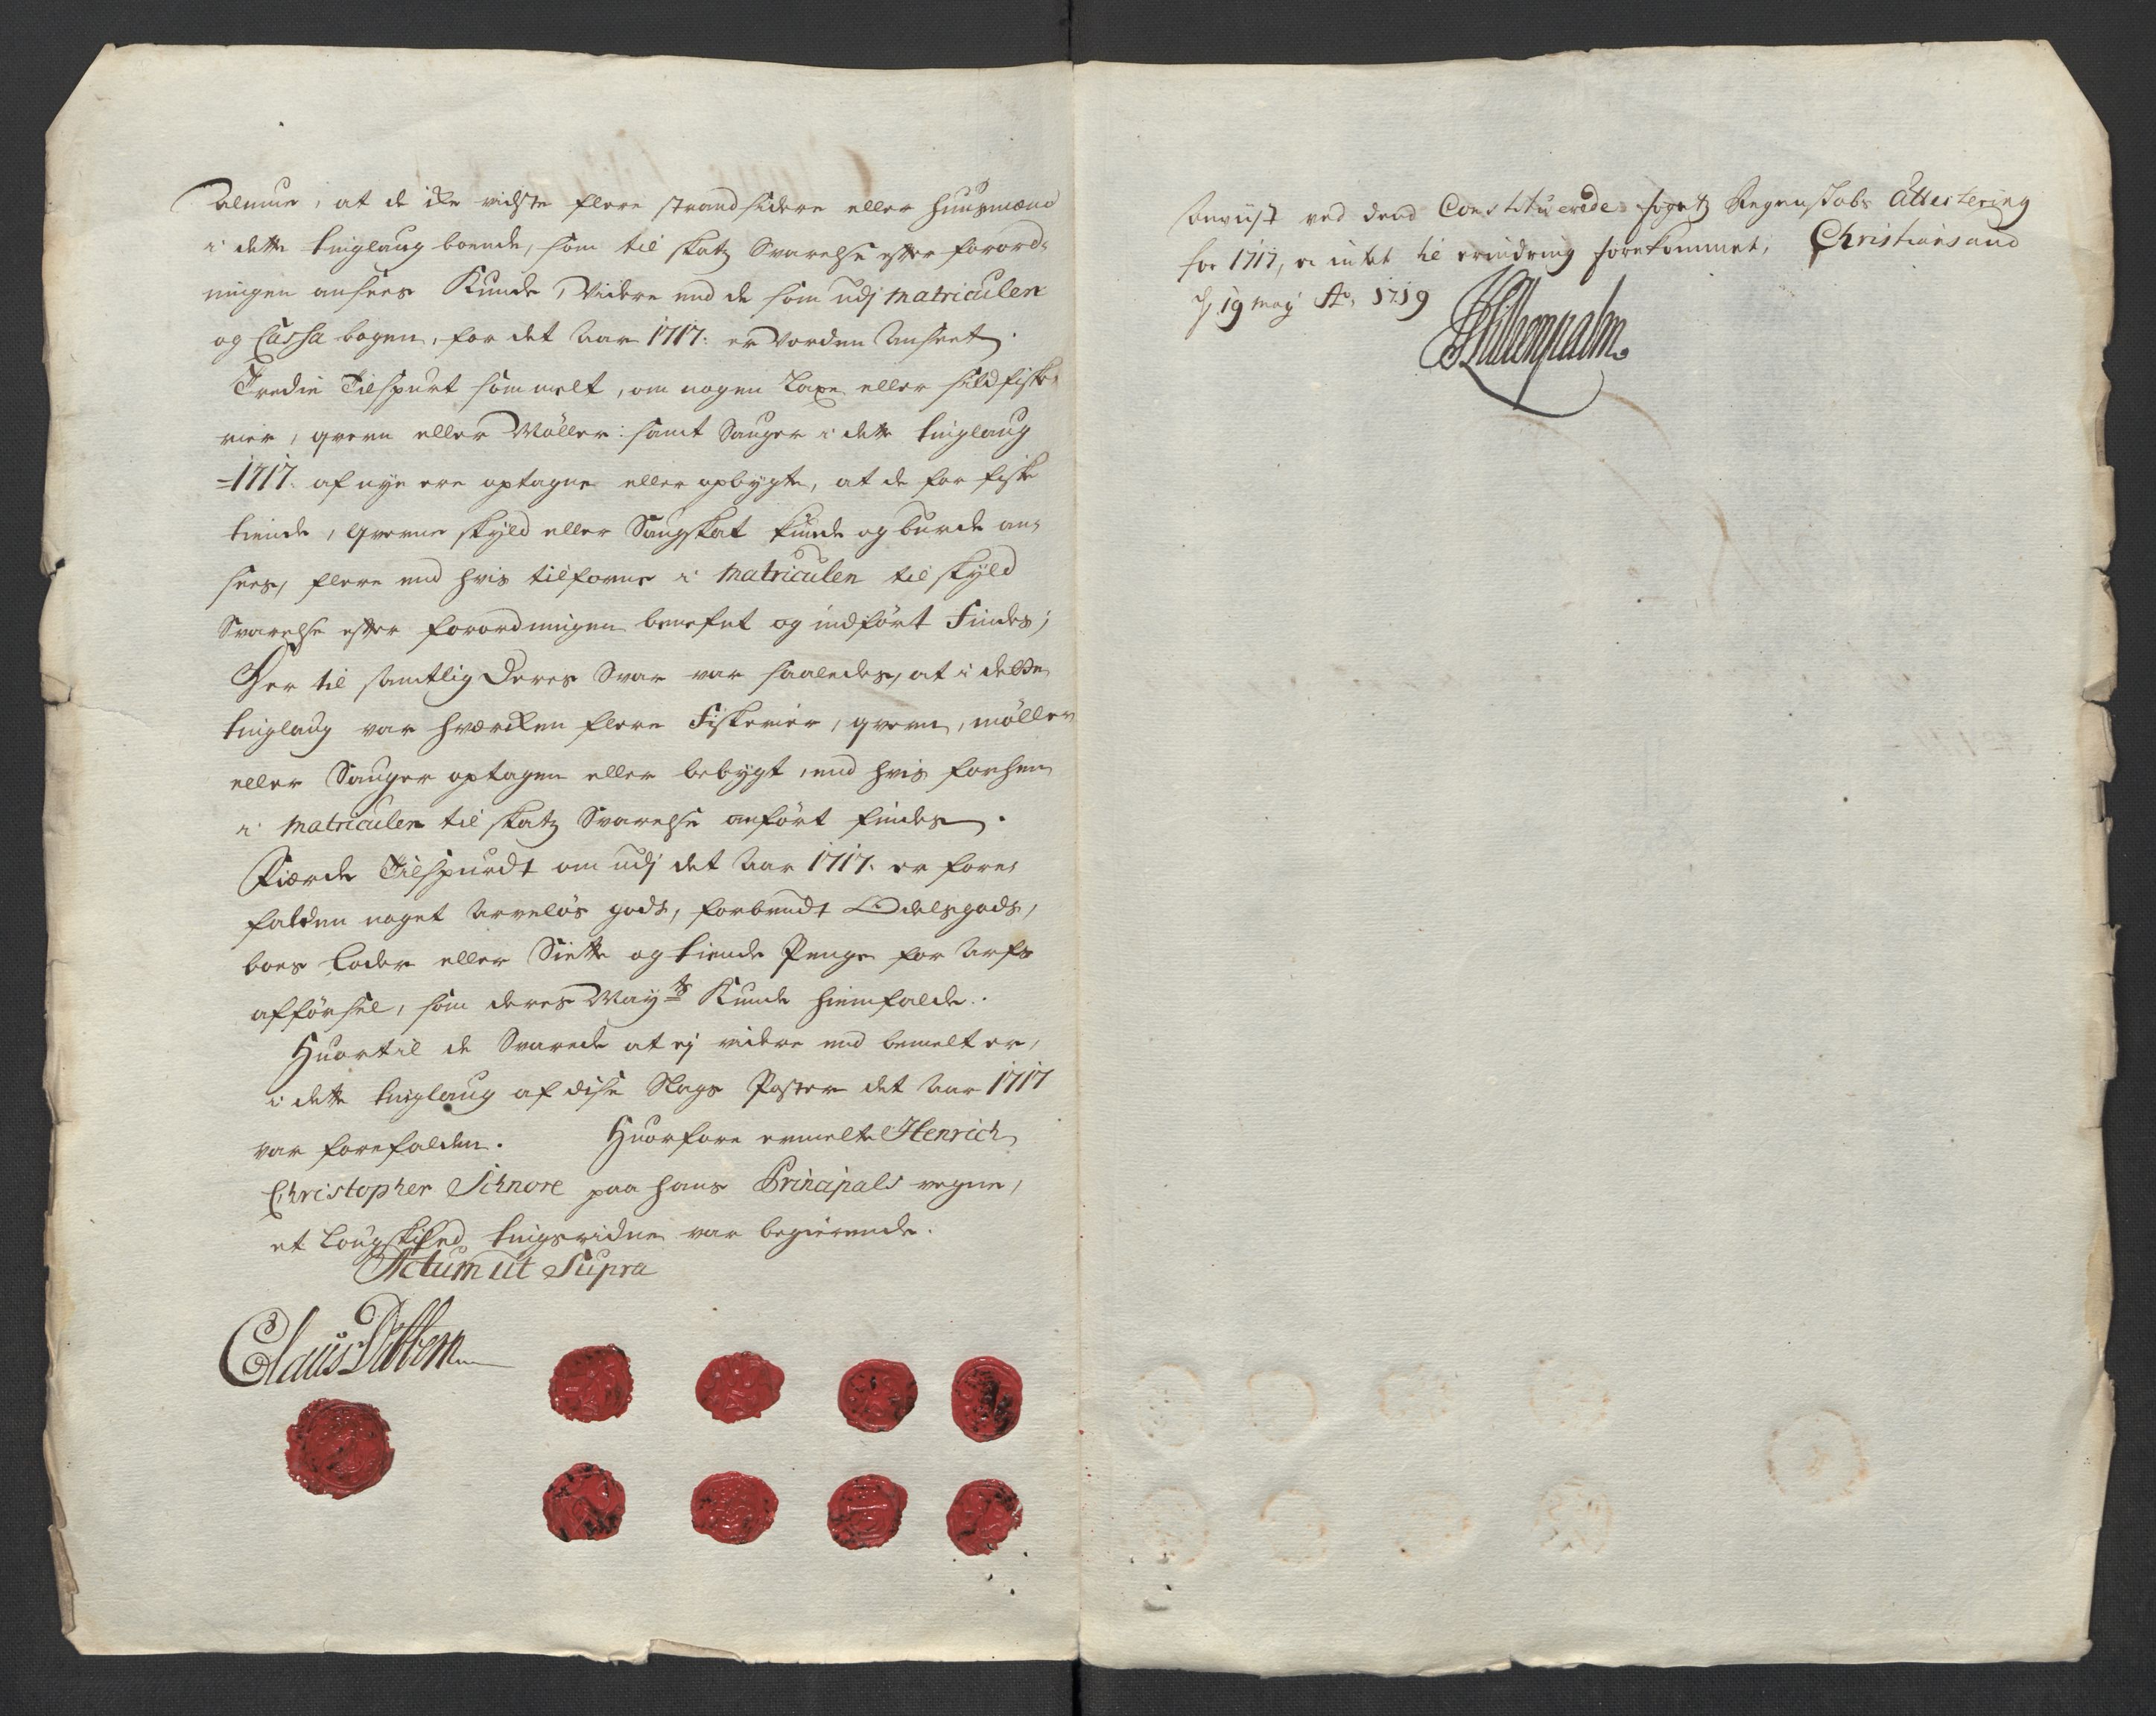 almue, at de iche vidste flere strandsidere eller huusmænd
i dette tinglaug boende, som til skatz Svarelse efter forord-
ningen ansees Kunde, Videre end de som udj Matriculen
og Cassa bogen, for det Aar 1717. er vorden Anseet.
Tredie Tilspurt som melt, om nogen Laxe eller sild fiske-
rier, qvern eller Møller: samt Sauger i dette tinglaug
1717. af nye ere optagne eller opbygte, at de for fiske
tiende, qverne skyld eller Saugskat kunde og burde an-
sees, flere end hvis tilforne i Matriculen til skyld
Svarelse efter forordningen benefnt og indført findes;
Her til samtlig Deres Svar var saaledes, at i dette
tinglaug var hværcken flere Fiskerier, qvern, møller
eller Sauger optagen eller bebygt, end hvis forhen
i Matriculen til skatz Svarelse anført findes.
Fierde Tilspurdt om udj det Aar 1717. er fore-
falden noget Arveløs gods, forbrudt Odelsgods,
boes Loder eller Siette og tiende Penge for Arfs
afførsel, som deres Mayts Kunde hiemfalde.
Huortil de Svarede at ej videre end bemelt er,
i dette tinglaug af dise Slags Poster det Aar 1717
var forefalden. Huorfore ermelte Henrich
Christopher Schnore paa hans Principals vegne,
et Lougskiked tingsvidne var begierende.
Actum ut Supra
Claus Dibbern
ved dend Constituerede fogetz Regenskabs Attestering
for 1717, er intet til erindring forekommet, Christiansand
d 19 may Ao 1719